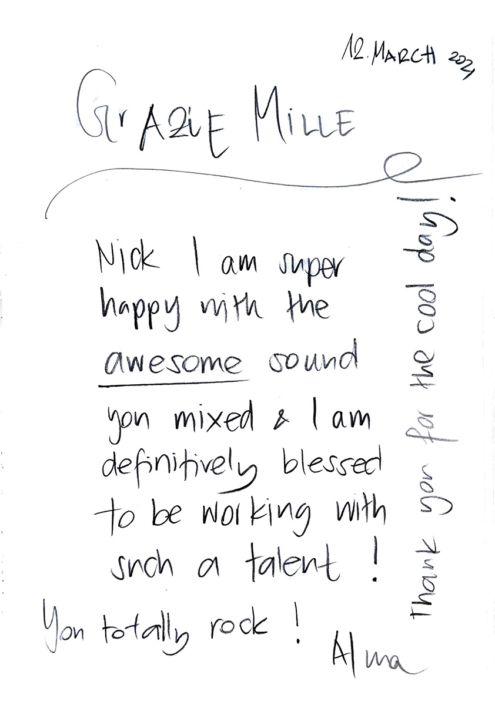 12. MARCH 2021
GrAZIE MILLE
Nick I am super
happy with the
awesome sound
you mixed & I am
definitively blessed
to be working with
such a talent !
You totally rock !
Alma
Thank you for the cool day!